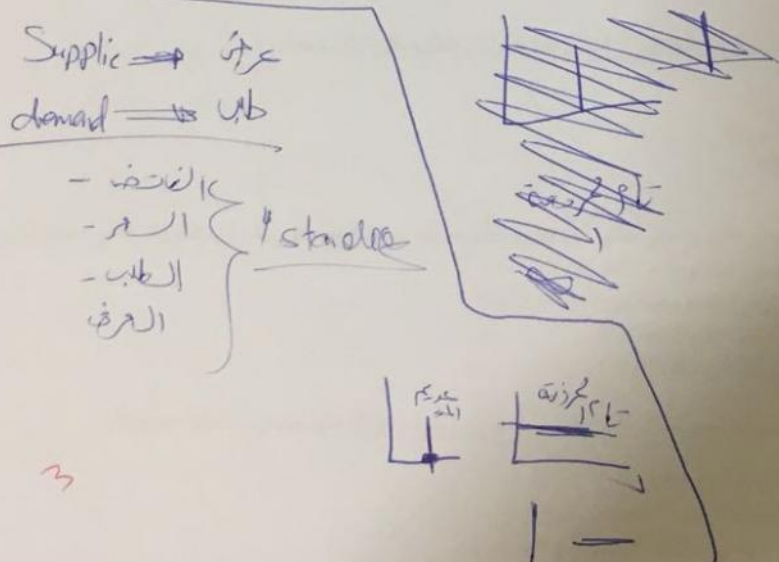 Supplie ⇒ عرض
demand ⇒ طلب
- الفائض
- السعر
- الطلب
العرض
عديم المر
تام المرونة
3